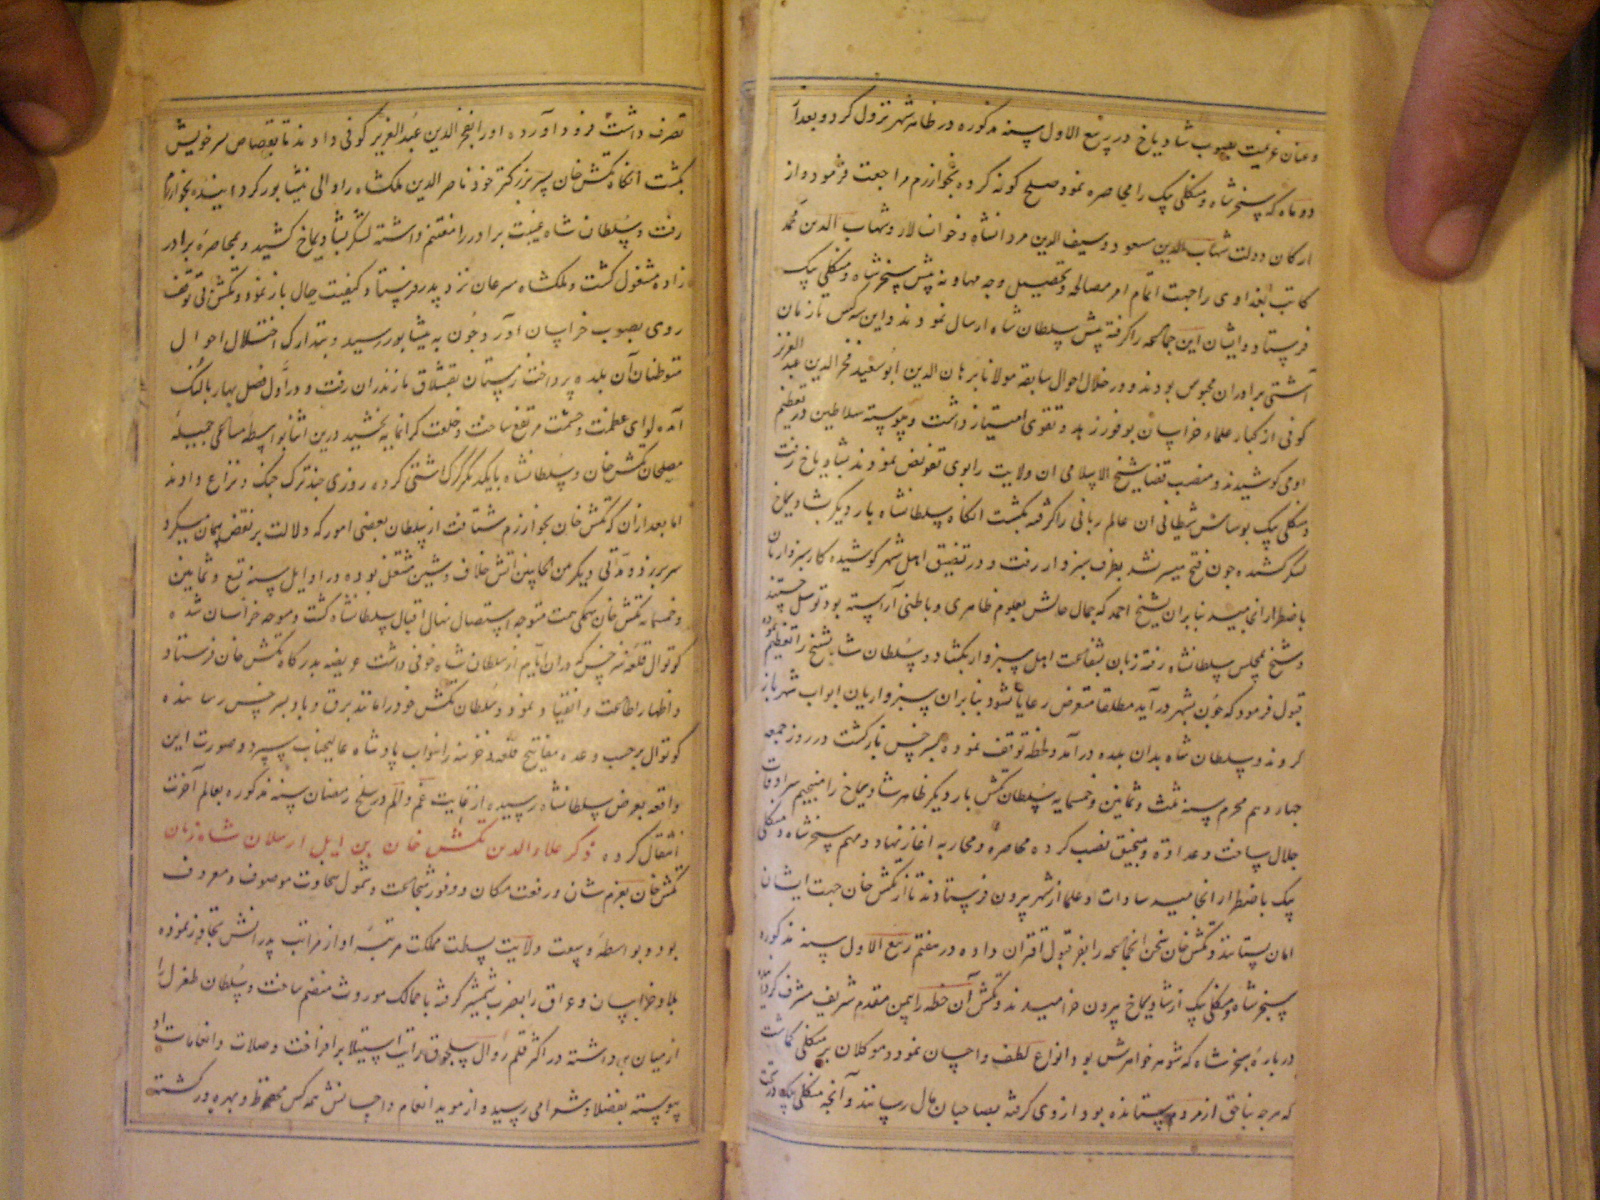 وعنان عزیمت بصوب شادیاخ در ربیع الاول سنه مذکوره در ظاهر شهر نزول کرد و بعد از
دو ماه که سنجرشاه و منکلی بیک را محاصره نمود صلح کونه کرده بخوارزم مراجعت فرمود و از
ارکان دولت شهاب الدین مسعود و سیف الدین مردانشاه و خوانسالار و شهاب الدین محمد
کاتب بغدادی را جهت اتمام امر مصالحه و تحصیل وجه مهادنه پیش سنجرشاه و منکلی بیک
فرستاد و ایشان این جماعه را کرفته پیش سلطان شاه ارسال نمودند و این سه کس تا زمان
آشتی برادران محبوس بودند و در خلال احوال سابقه مولانا برهان الدین ابوسعید فخر الدین عبد العزیز
کوفی از کبار علماء خراسان بوفور زهد و تقوی امتیاز داشت و پیوسته سلاطین در تعظیم
او می کوشیدند و منصب قضا شیخ الاسلامی ان ولایت را بوی تفویض نمودند بشادیاخ رفت
و منکلی بیک بوساوس شیطانی ان عالم ربانی را کرفته بکشت انکاه سلطانشاه بار دیکر بشادیاخ
لشکر کشیده چون فتح میسر نشد بطرف سبزوار رفت و در تضییق اهل شهر کوشیده کار سبزواریان
باضطرار انجامید بنابران شیخ احمد که بجمال حالش بعلوم ظاهری و باطنی آراسته بود توسل جستند
و شیخ بمجلس سلطانشاه رفته زبان بشفاعت اهل سبزوار بکشاد و سلطان شاه شیخ را تعظیم نموده
قبول فرمود که چون بشهر درآید مطلقا متعرض رعایا نشود بنابران سبزواریان ابواب شهر باز
کردند و سلطان شاه بدان بلده درآمد و لحظه توقف نموده بسرخس بازکشت در روز جمعه
چهاردهم محرم سنه ثلث و ثمانین و خمسمایه سلطان تکش بار دیکر ظاهر شادیاخ را مخیم سرادقات
جلال ساخت و عداوة و منجنیق نصب کرده محاصره و محاربه آغاز نهاد و مهم سنجرشاه و منکلی
بیک باضطرار انجامید سادات و علما از شهر بیرون فرستادند تا از تکش خان جهت ایشان
امان بستانند و تکش خان سخن انجماعه را بعز قبول اقتران داده در هفتم ربیع الاول سنه مذکوره
سنجرشاه و منکلی بیک از شادیاخ بیرون خرامیدند و تکش آن خطه را بیمن مقدم شریف مشرف کردانید
در باره سنجرشاه که شوهر خواهرش بود انواع لطف و احسان نمود و موکلان بر منکلی کماشت
که هرچه بناحق از مردم بستانده بود از وی کرفته بصاحبان مال رسانند و آنچه منکلی بیک در تحت
تصرف داشت فرود آورده او را بفخر الدین عبد العزیز کوفی دادند تا بقصاص سر خویش
بکشت انکاه تکش خان پسر بزرکتر خود ناصر الدین ملکشاه را والی نیشابور کردانیده بخوارزم
رفت و سلطان شاه غیبت برادر را مغتنم داشته لشکر بشادیاخ کشید و بمحاصره برادر
زاده مشغول کشت و ملکشاه سرعان نزد پدر فرستاد و کیفیت حال باز نمود و تکش بی توقف
روی بصوب خراسان آورد و چون به نیشابور رسید و بتدارک اختلال احوال
متوطنان آن بلده پرداخت زمستان بقشلاق مازندران رفت و در اول فصل بهار بالنک
آمده لوای عظمت و حشمت مرتفع ساخت و خلعت کرانمایه بخشید درین اثنا بواسطه مساعی جمیله
مصلحان تکش خان و سلطانشاه با یکدیکر کرک آشتی کرده روزی چند ترک جنک و نزاع دادند
اما بعد از ان که تکش خان بخوارزم شتافت از سلطان بعضی امور که دلالت بر نقض پیمان میکرد
سر برزد و مدتی دیکر من الجانبین آتش خلاف و شین مشتعل بوده در اوایل سنه تسع و ثمانین
و خمسمایه تکش خان بهمکی همت متوجه استیصال نهال اقبال سلطانشاه کشت و متوجه خراسان شده
کوتوال قلعه سرخس که دران ایام از سلطان شاه خوفی داشت عریضه بدرکاه تکش خان فرستاد
و اظهار اطاعت و انقیاد نمود و سلطان تکش خود را مانند برق و باد بسرخس رسانده
کوتوال برحسب وعده مفاتیح قلعه و خزینه را بنواب پادشاه عالیجناب سپرد و صورت این
واقعه بعرض سلطانشاه رسیده از غایت غم و الم در سلخ رمضان سنه مذکوره بعالم آخرت
انتقال کرده ذکر علاء الدین تکش خان بن ایل ارسلان شاه زمان
تکش خان بعزم شان و رفعت مکان و وفور شجاعت و شمول سخاوت موصوف و معروف
بود و بواسطه وسعت ولایت بسطت مملکت مرتبه او از مراتب پدرانش تجاوز نموده
بلاد خراسان و عراق را بضرب شمشیر کرفته با ممالک موروث منضم ساخت و سلطان طغرل را
از میان برداشته در اکثر قلمرو آل سلجوق رایت استیلا برافراخت و صلات و انعامات او
پیوسته بفضلا و شعرا می رسید و از موید انعام و احسانش همه کس محظوظ و بهره ور کشته